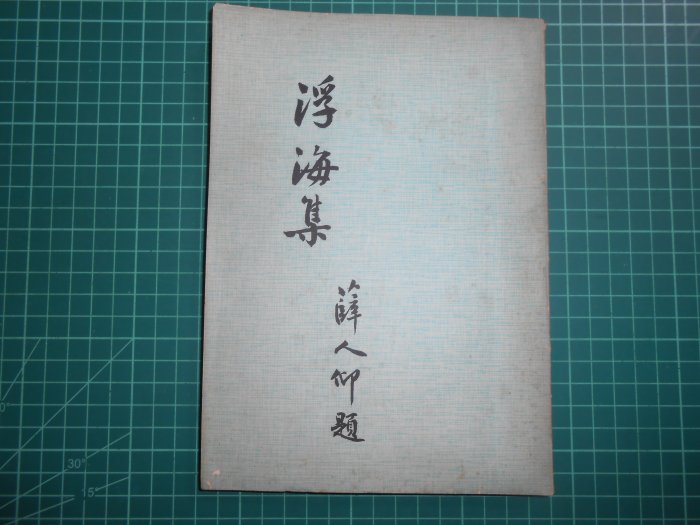 浮海集
薛人仰題
30°
15°